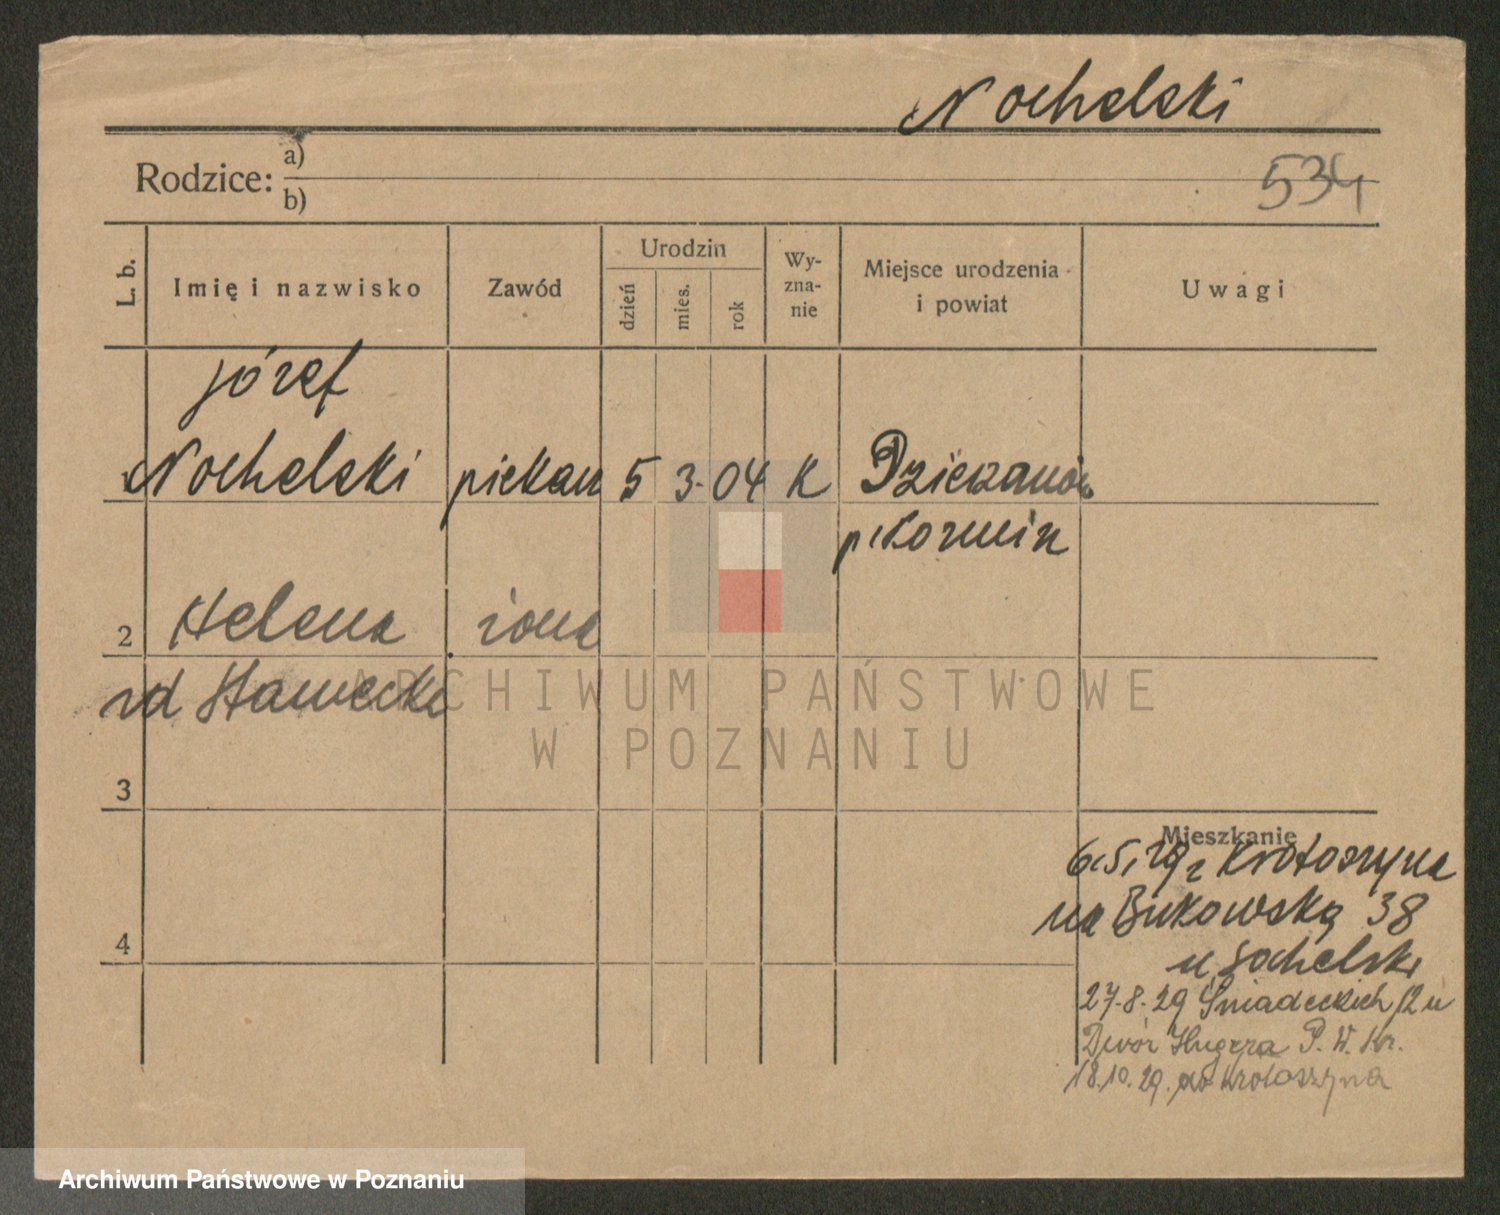 Nochelski
Rodzice: a)
b)
534
L. b.
Imię i nazwisko
Zawód
Urodzin
dzień
mies.
rok
Wy-
zna-
nie
Miejsce urodzenia
i powiat
Uwagi
Józef
1 Nochelski piekarz 5 3. 04 K
p Koźmin
2 Helena żona
3
4
Mieszkanie
6.5.29 z Krotoszyna
na Bukowską 38
u Sochelski
27.8.29 Śniadeckich 12 u
Dwór P. W. Kr.
18.10.29. do Krotoszyna
ARCHIWUM PAŃSTWOWE
W POZNANIU
Archiwum Państwowe w Poznaniu